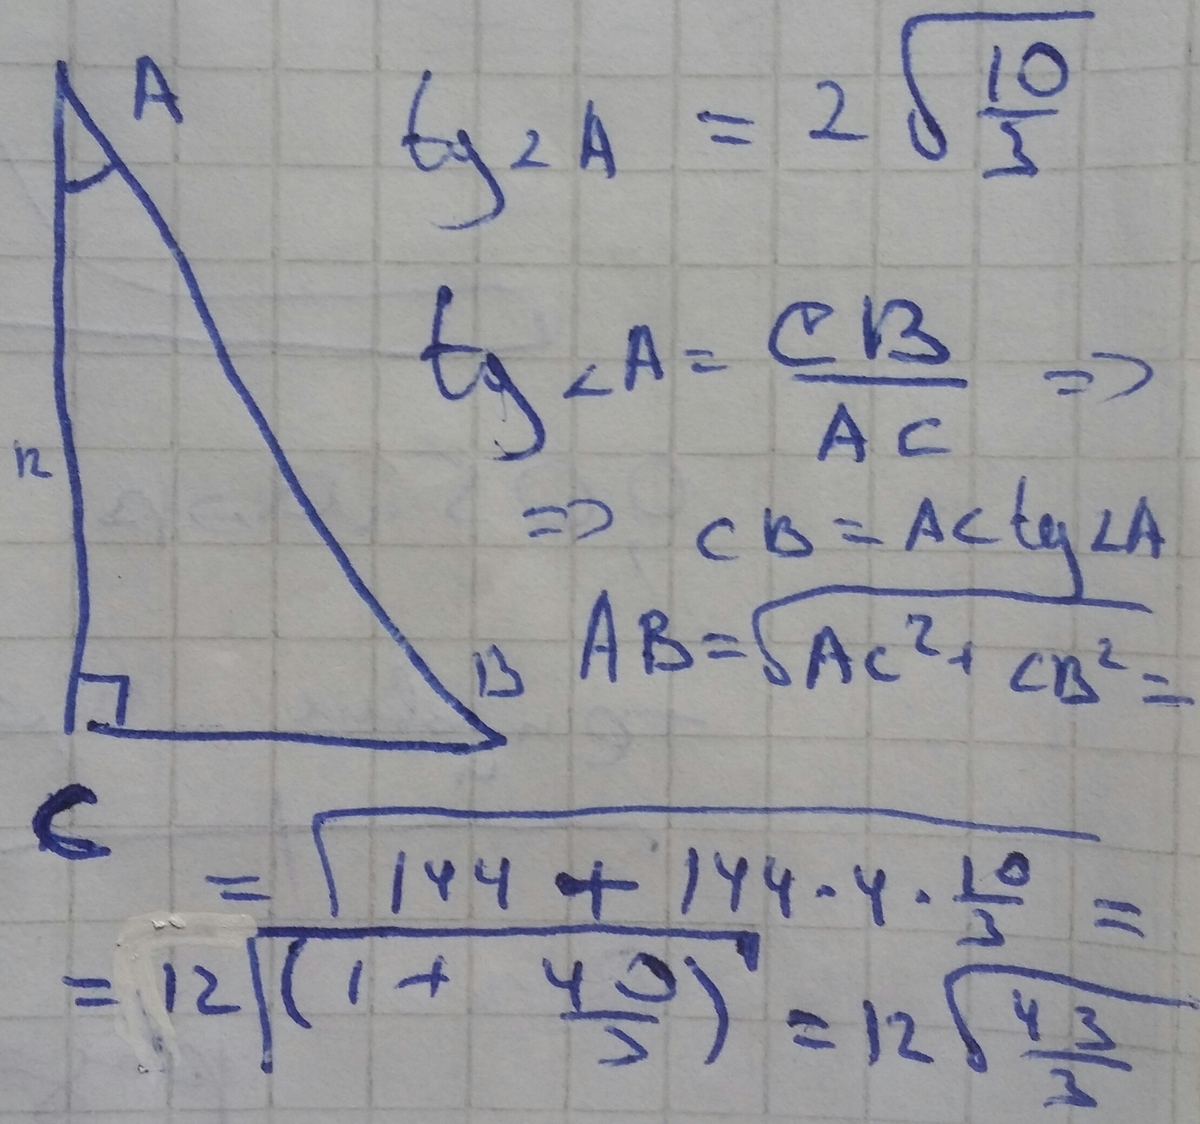 A
tg∠A = 2√(10/3)
tg∠A = CB/AC =>
12
=> CB = AC tg∠A
AB = √(AC² + CB²) =
B
C
= √(144 + 144·4·10/3) =
= 12√(1 + 40/3) = 12√(43/3)